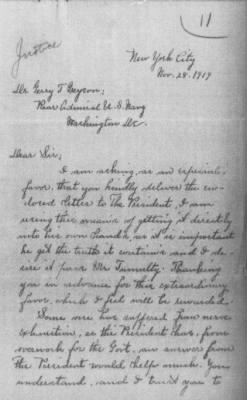 11
Justice
New York City
Nov. 28. 1919
Dr Gery T Geyson;
Rear Admiral U. S. Navy
Washington D.C.
Dear Sir;
I am asking, as an especial
favor, that you kindly deliver the en-
closed letter to The President, I am
using this means of getting it directly
into his own hands, as it is important
he get the truth it contains and I de-
sire it pass Mr Tumulty. Thanking
you in advance for this extraordinary
favor, which I feel will be rewarded.
Some one has suffered from nerve
exhaustion, as the President has, from
overwork for the Govt, an answer from
the President would help much. You
understand, and I trust you to